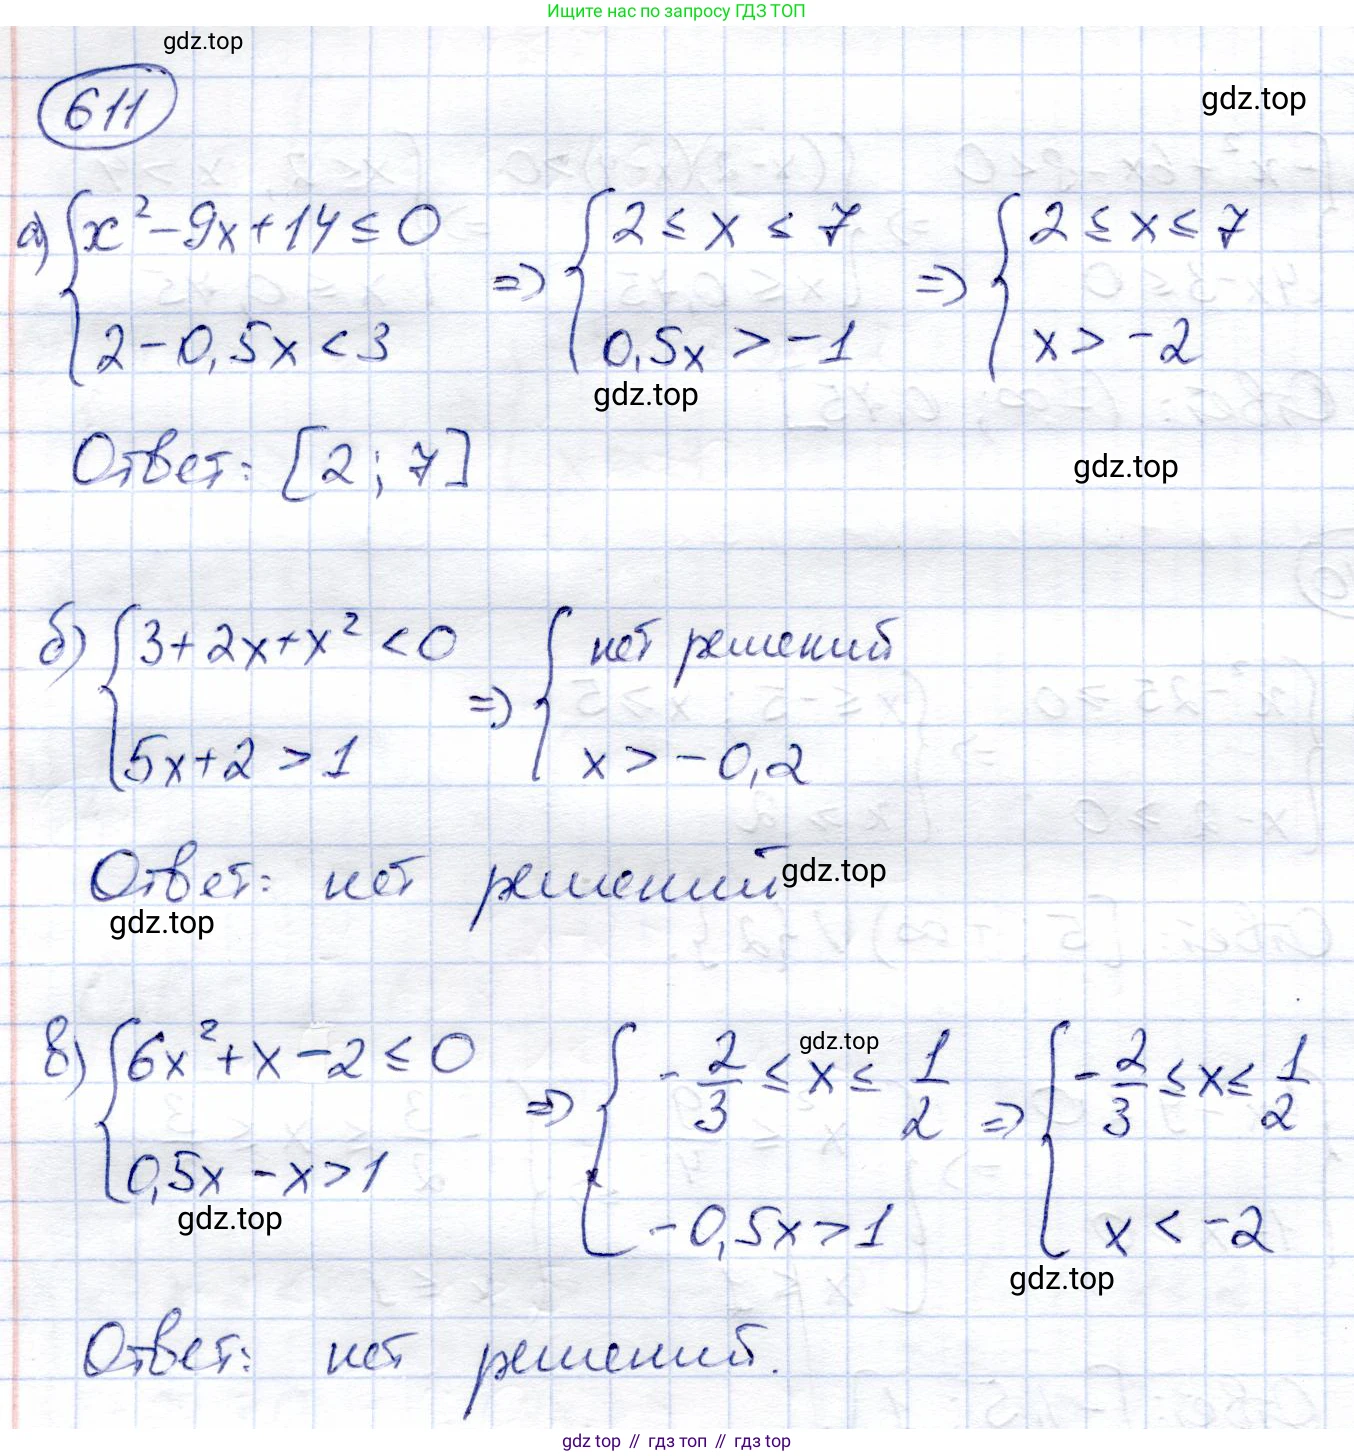 Ищите нас по запросу ГДЗ ТОП
gdz.top
611
gdz.top
а) { x² - 9x + 14 ≤ 0 => { 2 ≤ x ≤ 7 => { 2 ≤ x ≤ 7
2 - 0,5x < 3 0,5x > -1 x > -2
gdz.top
Ответ: [2; 7]
gdz.top
б) { 3 + 2x + x² < 0 => { нет решений
5x + 2 > 1 x > -0,2
Ответ: нет решений
gdz.top
gdz.top
в) { 6x² + x - 2 ≤ 0 => { -2/3 ≤ x ≤ 1/2 => { -2/3 ≤ x ≤ 1/2
gdz.top
0,5x - x > 1 -0,5x > 1 x < -2
gdz.top
gdz.top
Ответ: нет решений.
gdz top // гдз топ // gdz top